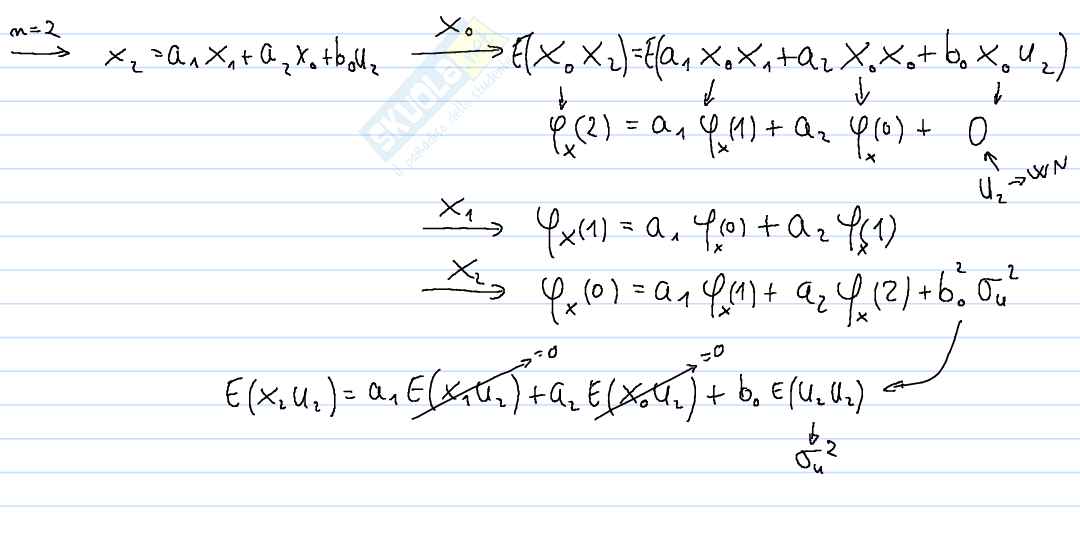 n=2 → x₂ = a₁x₁ + a₂x₀ + b₀u₂ —x₀→ E(x₀x₂) = E(a₁x₀x₁ + a₂x₀x₀ + b₀x₀u₂)
↓ ↓ ↓ ↓
φₓ(2) = a₁ φₓ(1) + a₂ φₓ(0) + 0
↖
u₂ → WN
—x₁→ φₓ(1) = a₁ φₓ(0) + a₂ φₓ(1)
—x₂→ φₓ(0) = a₁ φₓ(1) + a₂ φₓ(2) + b₀² σᵤ²
=0 =0
E(x₂u₂) = a₁ E(x₁u₂) + a₂ E(x₀u₂) + b₀ E(u₂u₂)
↓
σᵤ²
SKUOLA